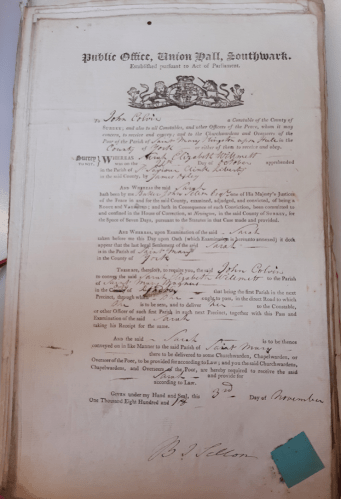 Public Office, Union Hall, Southwark.
Established pursuant to Act of Parliament.
To John Colvin a Constable of the County of
SURREY; and also to all Constables, and other Officers of the Peace, whom it may
concern, to receive and convey; and to the Churchwardens and Overseers of the
Poor of the Parish of Saint Mary
County of York or either of them to receive and obey.
Surrey WHEREAS Sarah Elizabeth
day of October apprehended
in the Parish of
in the said County, by James
AND WHEREAS the said Sarah
hath been by me John Sellon Esq. one of His Majesty's Justices
of the Peace in and for the said County, examined, adjudged, and convicted, of being a
Rogue and Vagabond; and hath in Consequence of such Conviction, been committed to
and confined at the House of Correction, at Newington, in the said County of Surrey, for
the Space of Seven Days, pursuant to the Statutes in that Case made and provided.
AND WHEREAS, upon Examination of the said Sarah
taken before me this Day upon Oath (which Examination is hereunto annexed) it doth
appear that the last legal Settlement of the said Sarah
is in the Parish of Saint Mary
in the County of York
THESE are, therefore, to require you, the said John Colvin
to convey the said Sarah Elizabeth
Parish of Saint Mary
in the County of that being the first Parish in the next
Precinct, through which she ought to pass, in the direct Road to which
she is to be sent, and to deliver her to the Constable,
or other Officer of such first Parish in such next Precinct, together with this Pass and
Examination of the said Sarah
taking his Receipt for the same.
AND the said Sarah is to be thence
conveyed on in like Manner to the said Parish of Saint Mary
there to be delivered to some Churchwarden, Chapelwarden, or
Overseer of the Poor, to be provided for according to Law; and you the said Churchwardens,
Chapelwardens, and Overseers of the Poor, are hereby required to receive the said
Sarah and provide for
according to Law.
Given under my Hand and Seal, this 3rd Day of November
One Thousand Eight Hundred and 14
B J Sellon